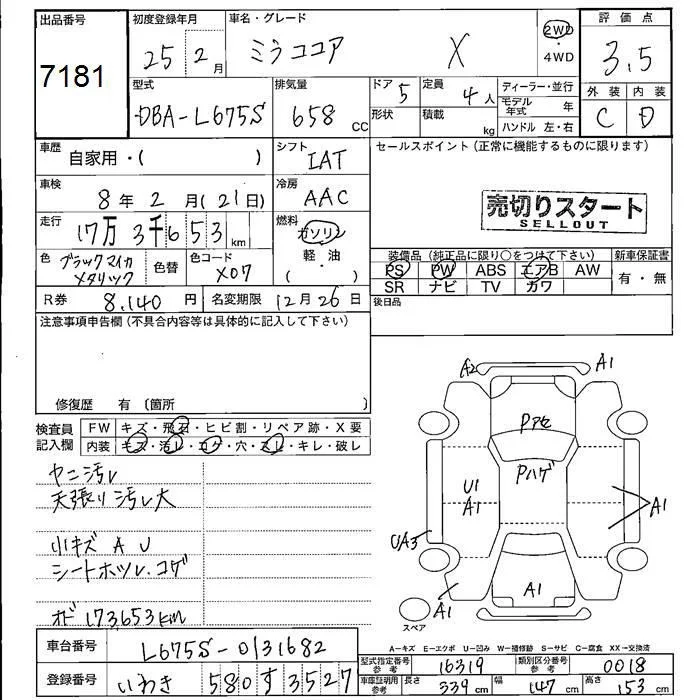 出品番号 7181
初度登録年月 25年 2月
車名・グレード ミラココア X
2WD・4WD
評価点 3.5
外装 C 内装 D
型式 DBA-L675S
排気量 658 CC
ドア 5
形状
定員 4人
積載 kg
ディーラー・並行
モデル年式 年
ハンドル 左・右
車歴 自家用・( )
シフト IAT
セールスポイント(正常に機能するものに限ります)
車検 8年 2月(21日)
冷房 AAC
売切りスタート
SELLOUT
走行 17万3千653km
燃料 ガソリン・軽油 ( )
色 ブラックマイカメタリック
色替
色コード X07
装備品(純正品に限り○をつけて下さい)
PS PW ABS エアB AW
SR ナビ TV カワ
新車保証書 有・無
R券 8,140円
名変期限 12月26日
後日品
注意事項申告欄(不具合内容等は具体的に記入して下さい)
修復歴 有 〔箇所 〕
検査員記入欄
FW キズ・飛石・ヒビ割・リペア跡・X要
内装 キズ・汚レ・コゲ・穴・スレ・キレ・破レ
ヤニ汚レ
天張り汚レ大
小キズ A U
シートホツレ.コゲ
オド 173,653km
A2
A1
Pアセ
Pハゲ
U1
A1
A1
UA3
A1
A1
スペア
A-キズ E-エクボ U-凹み W-補修跡 S-サビ C-腐食 XX-交換済
車台番号 L675S-0131682
登録番号 いわき 580 す 3527
型式指定番号 参考 16319
類別区分番号 参考 0018
車庫証明用 参考 長さ 339cm 幅 147cm 高さ 153cm